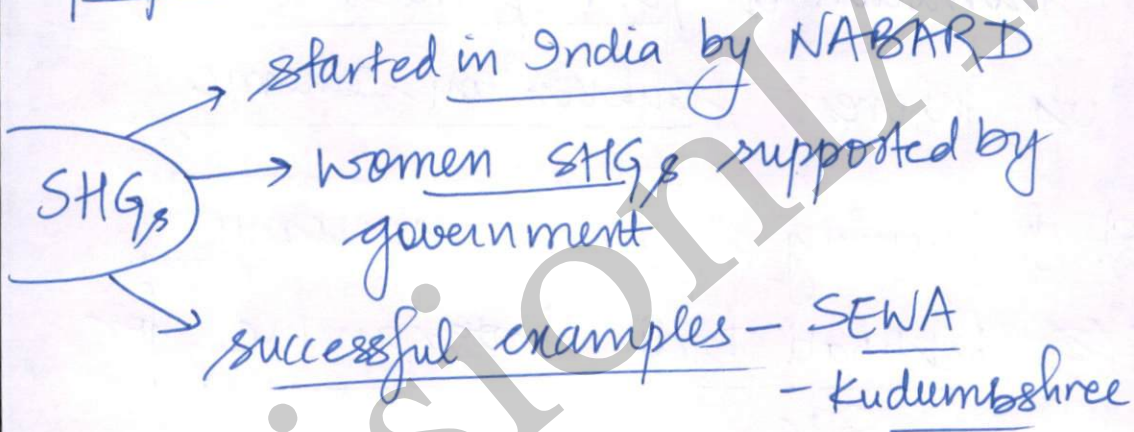 started in India by NABARD
SHGs
women SHGs supported by
government
successful examples - SEWA
- Kudumbshree
visionIA